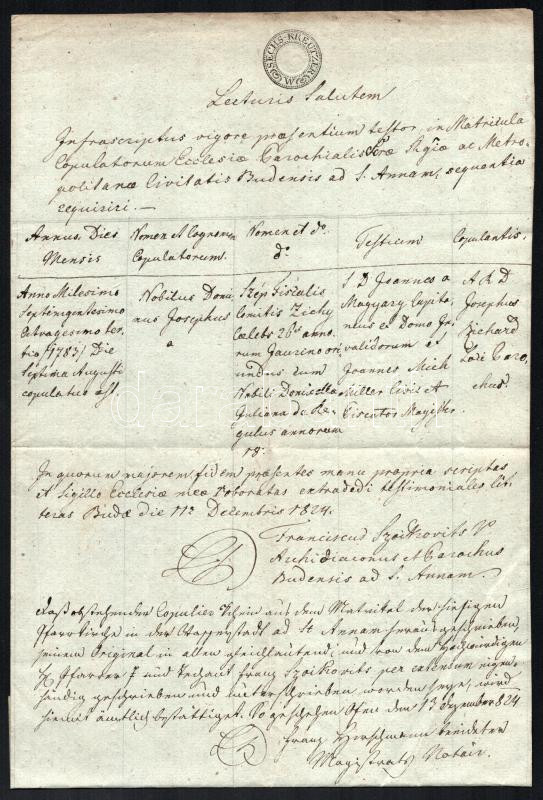 SECHS KREUTZER W
Lecturis Salutem
Infrascriptus vigore præsentium testor, in Matricula
Copulatorum Ecclesiæ Parochialis Regiæ ac Metro-
politanæ Civitatis Budensis ad S. Annam, sequentia
requiriri. —
Annus Dies
Mensis
Nomen et Cognomen
Copulatorum.
Nomen et do.
do.
Testium
Copulantis.
Anno Milesimo
Septingentesimo
Octvagesimo ter-
tio (1783) Die
Septima Augusti
copulatus est.
Nobilus Domi-
nus Josephus
a
Szép Fiscalis
Comitis Zichy
Cælebs 26 anno-
rum Jaurino ori-
undus cum
Nobili Domicella
Juliana de Re-
gulus annorum
18.
S D Joannes a
Magyary Capita-
neus ex Domo In-
validorum et
Joannes Mich
Miller Civis et
Magister
A R D
Josephus
Richard
Loci Paro-
chus.
In quorum majorem fidem præsentes manu propria scriptas
et Sigillo Ecclesiæ meæ roboratas extradedi testimoniales lit-
teras Budæ die 11a Decembris 1824.
Franciscus Szoikovits
Archidiaconus et Parochus
Budensis ad S. Annam.
Daß obstehender Copulier Schein aus dem Matrikel der hiesigen
Pfarrkirche in der Wasserstadt ad St Annam herausgeschrieben,
seinem Original in allen gleichlautend, und von dem Hochwürdigen
H Pfarrer und Dechant Franz Szoikovits per extensum eigen-
händig geschrieben und unterschrieben worden seye, wird
hiemit ämtlich bestättiget. So geschehen Ofen den 13 Dezember 824
Franz Hirschmann beeideter
Magistrats Notär.